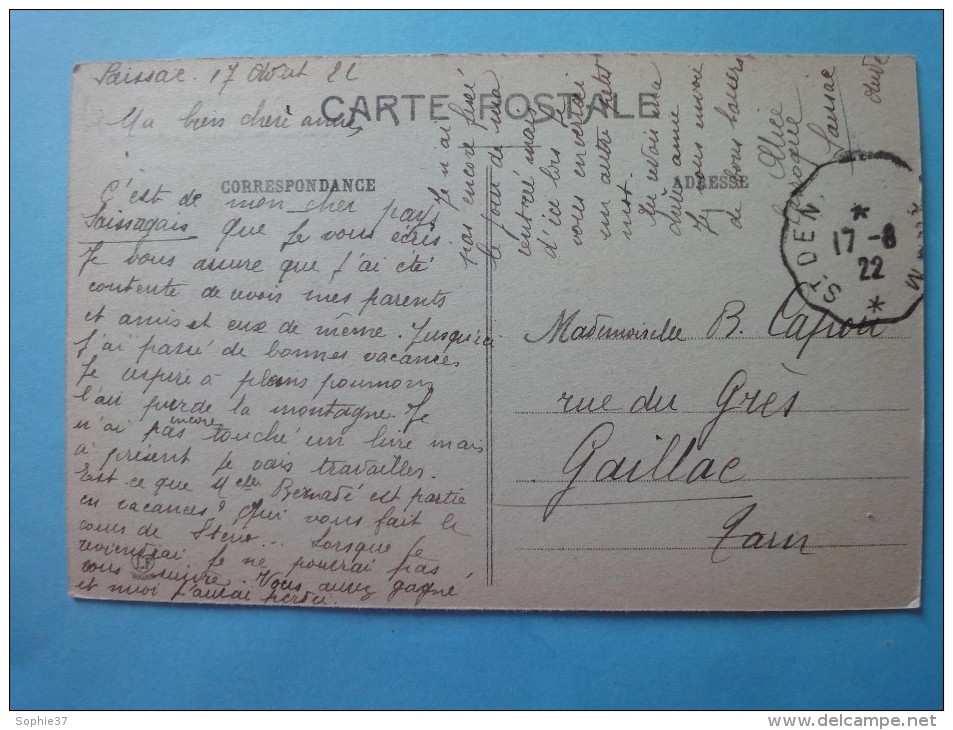 Saissac. 17 Août 22
CARTE POSTALE
Ma bien chère amie,
CORRESPONDANCE
C'est de mon cher pays
Saissagais que je vous écris.
Je vous assure que j'ai été
contente de revoir mes parents
et amis et eux de même. Jusqu'ici
j'ai passé de bonnes vacances
Je respire à pleins poumons
l'air pur de la montagne. Je
n'ai pas encore touché un livre mais
à présent je vais travailler.
Est-ce que Melle est partie
en vacances? Qui vous fait le
cours de Sténo... Lorsque je
reviendrai je ne pourrai pas
vous suivre. Vous aurez gagné
et moi j'aurai perdu.
Je n'ai
pas encore fixé
le jour de ma
rentrée mais
d'ici lors je
vous enverrai
un autre petit
mot.
Au revoir ma
chère amie
Je vous envoie
de bons baisers
Alice
Laroque
Saissac
Aude
ADRESSE
Mademoiselle B. Capou
rue du Grès
Gaillac
Tarn
St DEN
*
17-8
22
*
Sophie37
www.delcampe.net